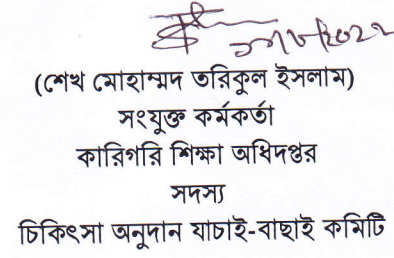 (শেখ মোহাম্মদ তরিকুল ইসলাম)
সংযুক্ত কর্মকর্তা
কারিগরি শিক্ষা অধিদপ্তর
সদস্য
চিকিৎসা অনুদান যাচাই-বাছাই কমিটি